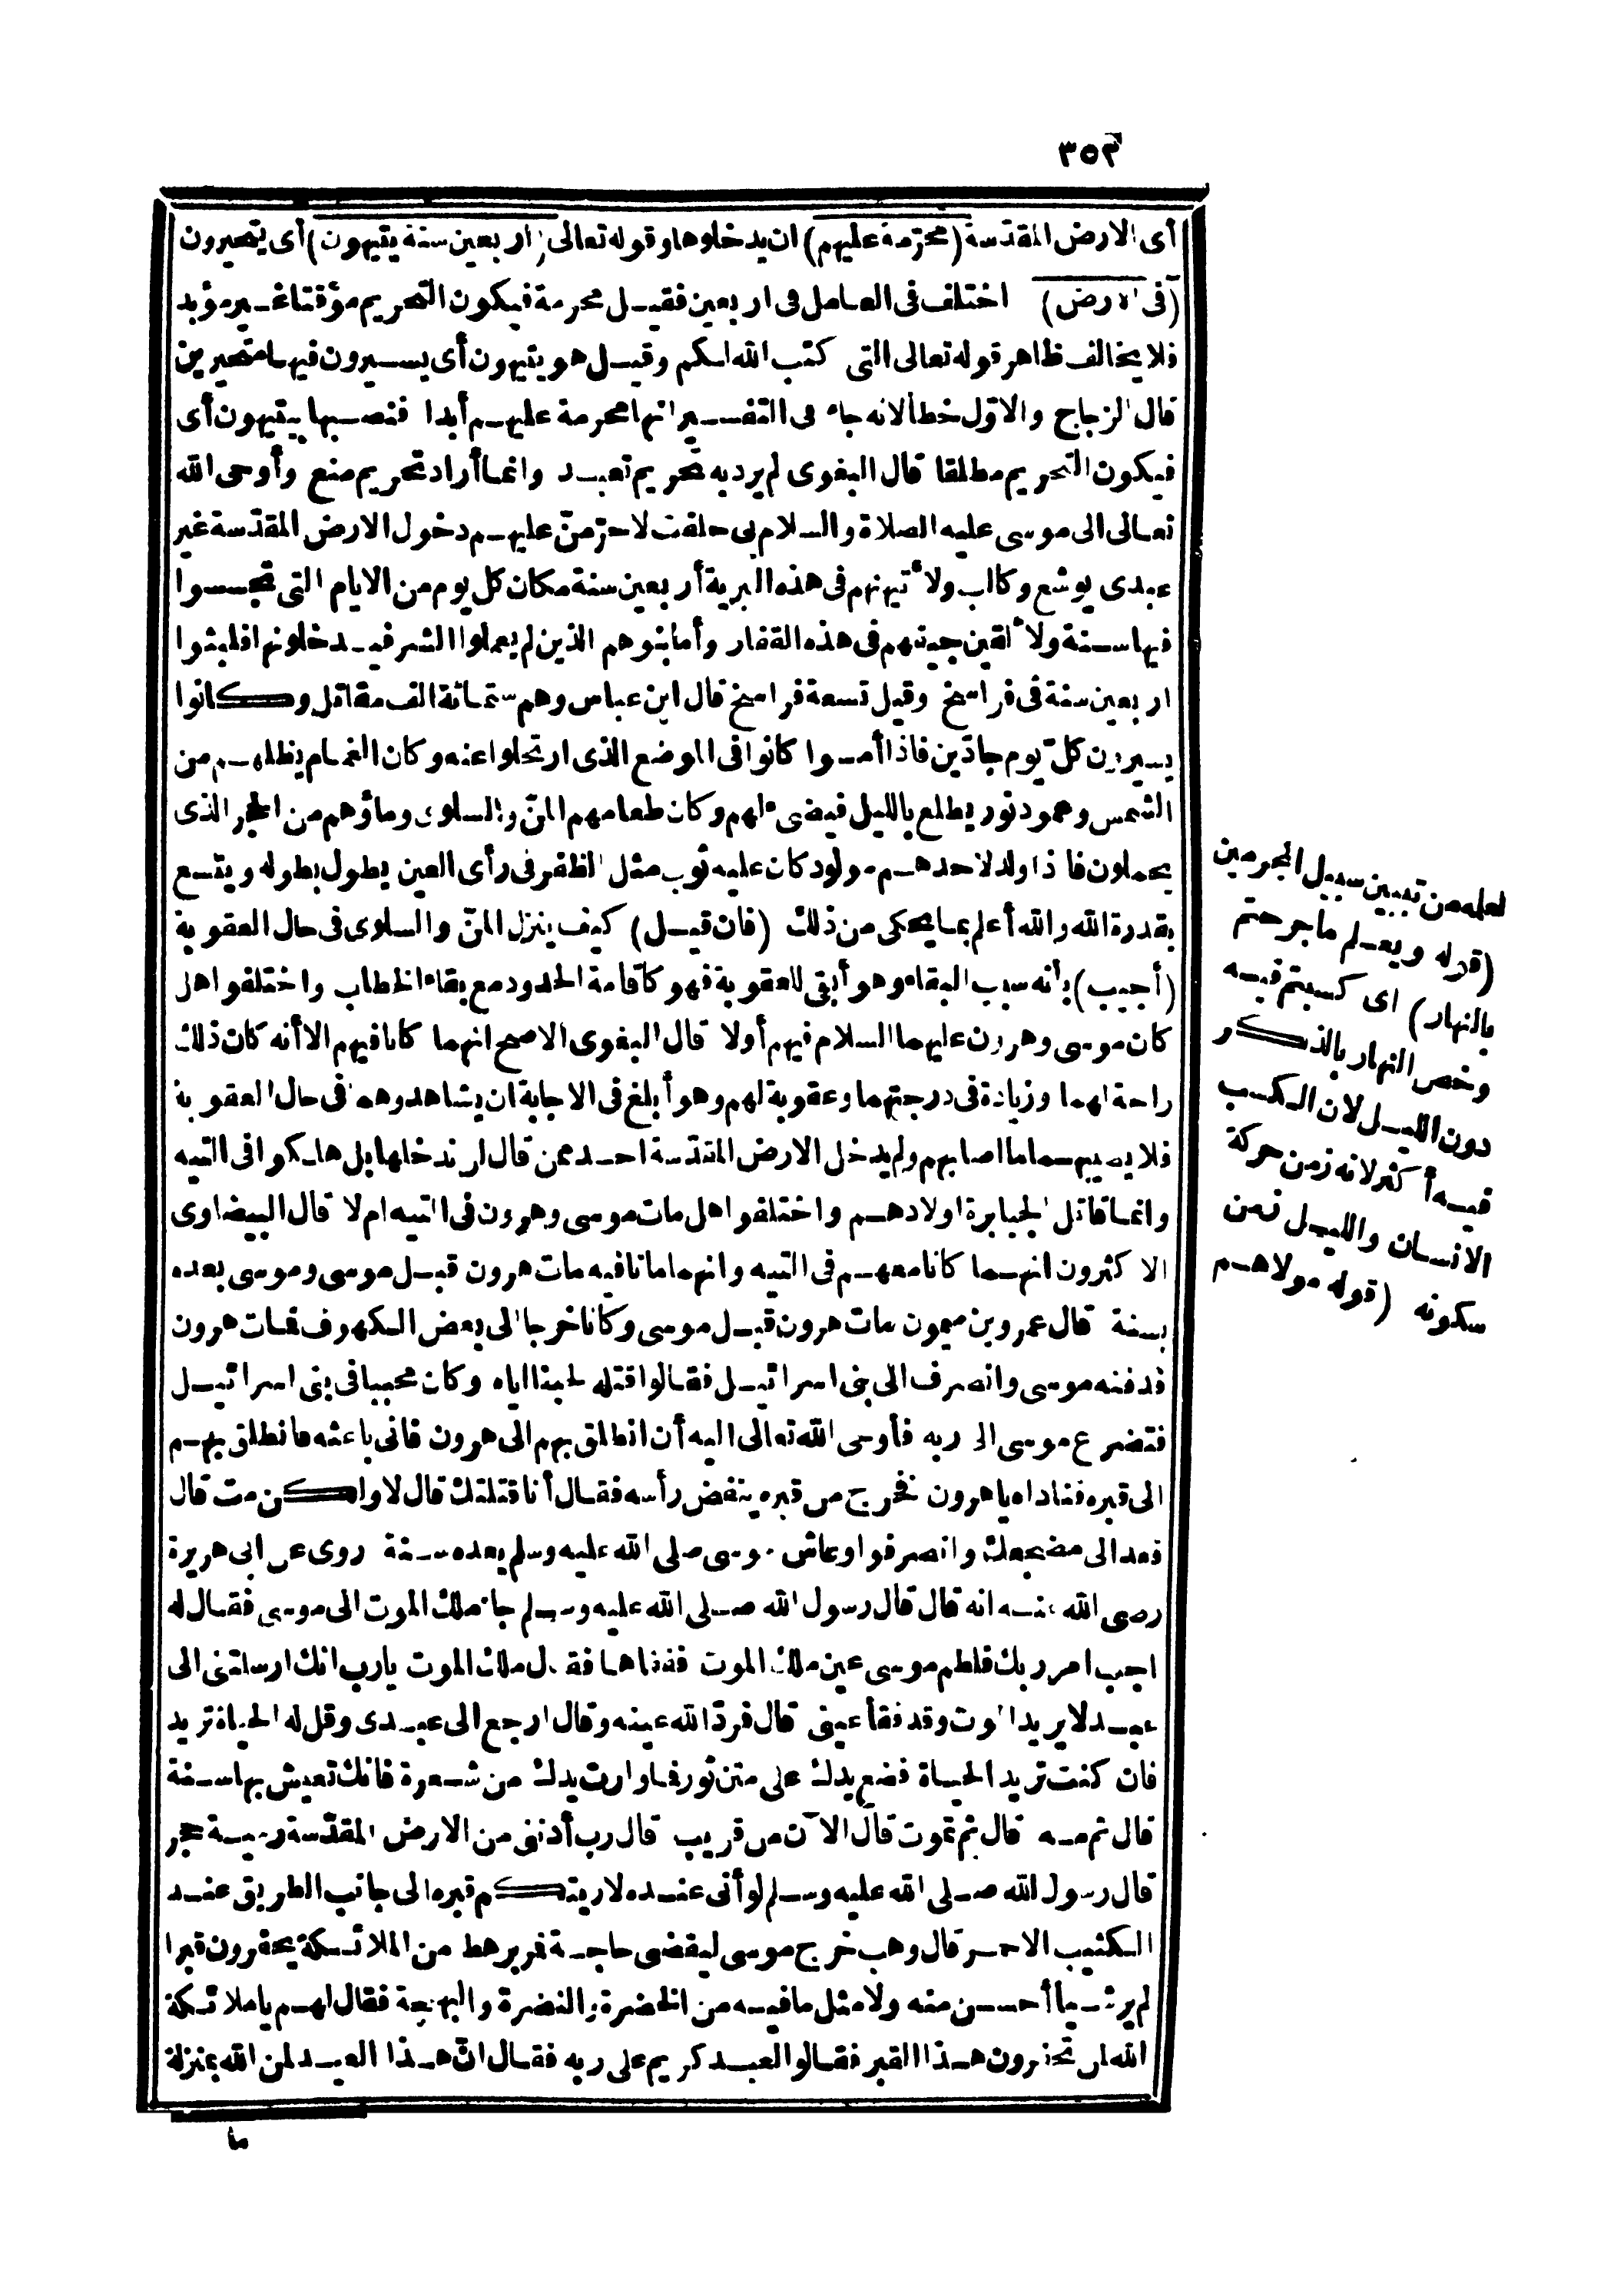 ٣٥٢
أى الارض المقدّسة (محرّمة عليهم) ان يدخلوها وقوله تعالى (اربعين سنة يتيهون) أى يتحيرون
(فى الارض) اختلف فى العامل فى اربعين فقيل محرمة فيكون التحريم مؤقتا غير مؤبد
فلا يخالف ظاهر قوله تعالى التى كتب الله لكم وقيل هو يتيهون أى يسيرون فيها متحيرين
قال الزجاج والاوّل خطأ لانه جاء فى التفسير انها محرمة عليهم أبدا فنصبها بيتيهون أى
فيكون التحريم مطلقا قال البغوى لم يرد به تحريم تعبد وانما أراد تحريم منع وأوحى الله
تعالى الى موسى عليه الصلاة والسلام بى حلفت لاحرّمنّ عليهم دخول الارض المقدّسة غير
عبدى يوشع وكالب ولأتيهنهم فى هذه البرية أربعين سنة مكان كل يوم من الايام التى تجسسوا
فيها سنة ولألقين جيفهم فى هذه القفار وأما بنوهم الذين لم يعملوا الشر فيدخلونها فلبثوا
اربعين سنة فى فراسخ وقيل تسعة فراسخ قال ابن عباس وهم ستمائة الف مقاتل وكانوا
يسيرون كلّ يوم جادّين فاذا أمسوا كانوا فى الموضع الذى ارتحلوا عنه وكان الغمام يظلهم من
الشمس وعمود نور يطلع بالليل فيضىء لهم وكان طعامهم المنّ والسلوى وماؤهم من الحجر الذى
يحملون فاذا ولد لاحدهم مولود كان عليه ثوب مثل الظفر فى رأى العين يطول بطوله ويتسع
بقدرة الله والله أعلم بما يحكى من ذلك (فان قيل) كيف ينزل المنّ والسلوى فى حال العقوبة
(أجيب) بأنه سبب البقاء وهو أبقى للعقوبة فهو كاقامة الحدود مع بقاء الخطاب واختلفوا هل
كان موسى وهرون عليهما السلام فيهم أولا قال البغوى الاصح انهما كانا فيهم الا أنه كان ذلك
راحة لهما وزيادة فى درجتهما وعقوبة لهم وهو أبلغ فى الاجابة ان يشاهدوهما فى حال العقوبة
فلا يصيبهما ما اصابهم ولم يدخل الارض المقدّسة احد ممن قال لن ندخلها بل هلكوا فى التيه
وانما قاتل الجبابرة اولادهم واختلفوا هل مات موسى وهرون فى التيه ام لا قال البيضاوى
الاكثرون انهما كانا معهم فى التيه وانهما ماتا فيه مات هرون قبل موسى وموسى بعده
بسنة قال عمرو بن ميمون مات هرون قبل موسى وكانا خرجا الى بعض الكهوف فمات هرون
فدفنه موسى وانصرف الى بنى اسرائيل فقالوا قتلته لحبنا اياه وكان محببا فى بنى اسرائيل
فتضرع موسى الى ربه فأوحى الله تعالى اليه أن انطلق بهم الى هرون فانى باعثه فانطلق بهم
الى قبره فناداه يا هرون فخرج من قبره ينفض رأسه فقال أنا قتلتك قال لا ولكن مت قال
فعد الى مضجعك وانصرفوا وعاش موسى صلى الله عليه وسلم بعده سنة روى عن ابى هريرة
رضى الله عنه انه قال قال رسول الله صلى الله عليه وسلم جاء ملك الموت الى موسى فقال له
اجب امر ربك فلطم موسى عين ملك الموت ففقأها فقال ملك الموت يارب انك ارسلتنى الى
عبد لا يريد الموت وقد فقأ عينى قال فردّ الله عينه وقال ارجع الى عبدى وقل له الحياة تريد
فان كنت تريد الحياة فضع يدك على متن ثور فما وارت يدك من شعرة فانك تعيش بها سنة
قال ثم مه قال ثم تموت قال الآن من قريب قال رب أدننى من الارض المقدّسة رمية حجر
قال رسول الله صلى الله عليه وسلم لو أنى عنده لاريتكم قبره الى جانب الطريق عند
الكثيب الاحمر قال وهب خرج موسى ليقضى حاجة فمر برهط من الملائكة يحفرون قبرا
لم ير شيأ أحسن منه ولا مثل ما فيه من الخضرة والنضرة والبهجة فقال لهم يا ملائكة
الله لمن تحفرون هذا القبر فقالوا لعبد كريم على ربه فقال انّ هذا العبد لمن الله بمنزلة
ما
لعله من تبيين سبيل المجرمين
(قوله ويعلم ما جرحتم
بالنهار) اى كسبتم فيه
وخص النهار بالذكر
دون الليل لان الكسب
فيه أكثر لانه زمن حركة
الانسان والليل زمن
سكونه (قوله مولاهم